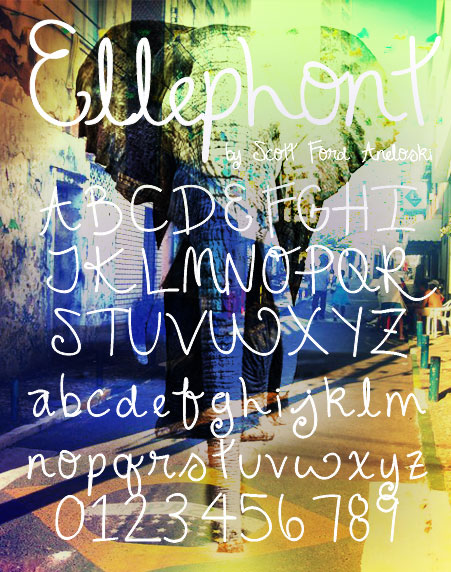 Ellephont
by Scott Ford Aneloski
ABCDEFGHI
JKLMNOPQR
STUVWXYZ
abcdefghijklm
nopqrstuvwxyz
0123456789